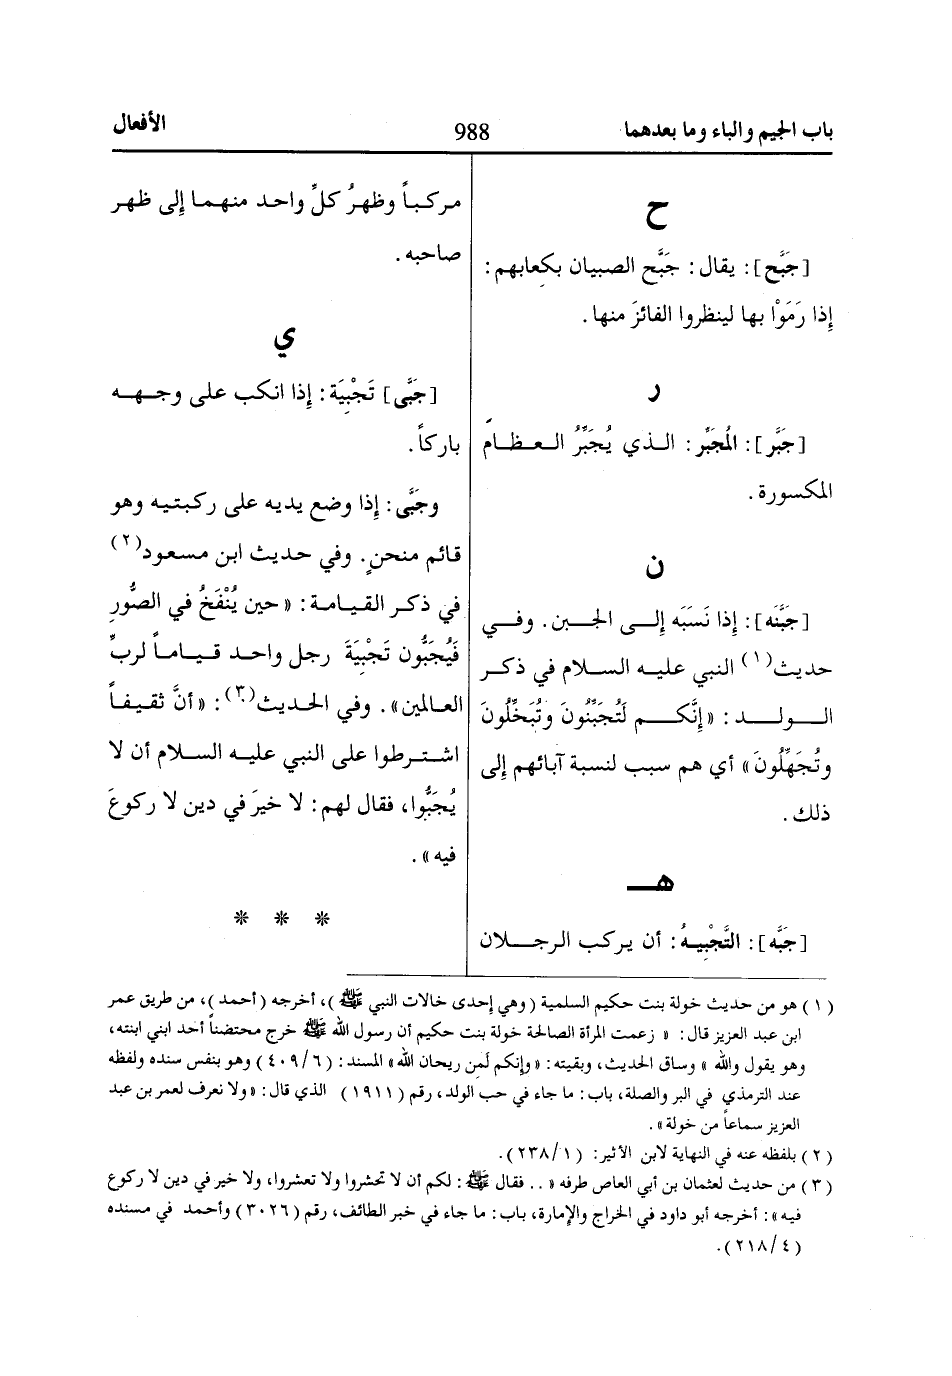 باب الجيم والباء وما بعدهما
988
الأفعال
ح
[جَبَّح]: يقال: جَبَّح الصبيان بكعابهم:
إذا رَمَوْا بها لينظروا الفائزَ منها.
ر
[جَبَّر]: المُجَبِّر: الـذي يُجَبِّرُ العـظـامَ
المكسورة.
ن
[جَبَّنه]: إذا نَسَبَه إلـى الجـبن. وفـي
حديث(١) النبي عليه السلام في ذكر
الولـد: «إنَّكـم لَتُجَبِّنُونَ وتُبَخِّلُونَ
وتُجَهِّلُونَ» أي هم سبب لنسبة آبائهم إلى
ذلك.
هـ
[جَبَّه]: التَّجْبيـهُ: أن يركب الرجـلان
مركباً وظهرُ كلِّ واحد منهما إلى ظهر
صاحبه.
ي
[جَبَّى] تَجْبِيَة: إذا انكب على وجـهـه
باركاً.
وجَبَّى: إذا وضع يديه على ركبتيه وهو
قائم منحنٍ. وفي حديث ابن مسعود(٢)
في ذكر القيامة: «حين يُنْفَخُ في الصُّورِ
فَيُجَبُّون تَجْبِيَةَ رجل واحد قياماً لربِّ
العالمين». وفي الحديث(٣): «أنَّ ثقيفاً
اشترطوا على النبي عليه السلام أن لا
يُجَبُّوا، فقال لهم: لا خيرَ في دين لا ركوعَ
فيه».
* * *
(١) هو من حديث خولة بنت حكيم السلمية (وهي إحدى خالات النبي ﷺ)، أخرجه (أحمد)، من طريق عمر
ابن عبد العزيز قال: « زعمت المرأة الصالحة خولة بنت حكيم أن رسول الله ﷺ خرج محتضناً أحد ابني ابنته،
وهو يقول والله » وساق الحديث، وبقيته: «وإنكم لَمن ريحان الله» المسند: (٤٠٩/٦) وهو بنفس سنده ولفظه
عند الترمذي في البر والصلة، باب: ما جاء في حب الولد، رقم (١٩١١) الذي قال: «ولا نعرف لعمر بن عبد
العزيز سماعاً من خولة».
(٢) بلفظه عنه في النهاية لابن الأثير: (٢٣٨/١).
(٣) من حديث لعثمان بن أبي العاص طرفه «.. فقال ﷺ: لكم أن لا تحشروا ولا تعشروا، ولا خير في دين لا ركوع
فيه»: أخرجه أبو داود في الخراج والإمارة، باب: ما جاء في خبر الطائف، رقم (٣٠٢٦) وأحمد في مسنده
(٢١٨/٤).